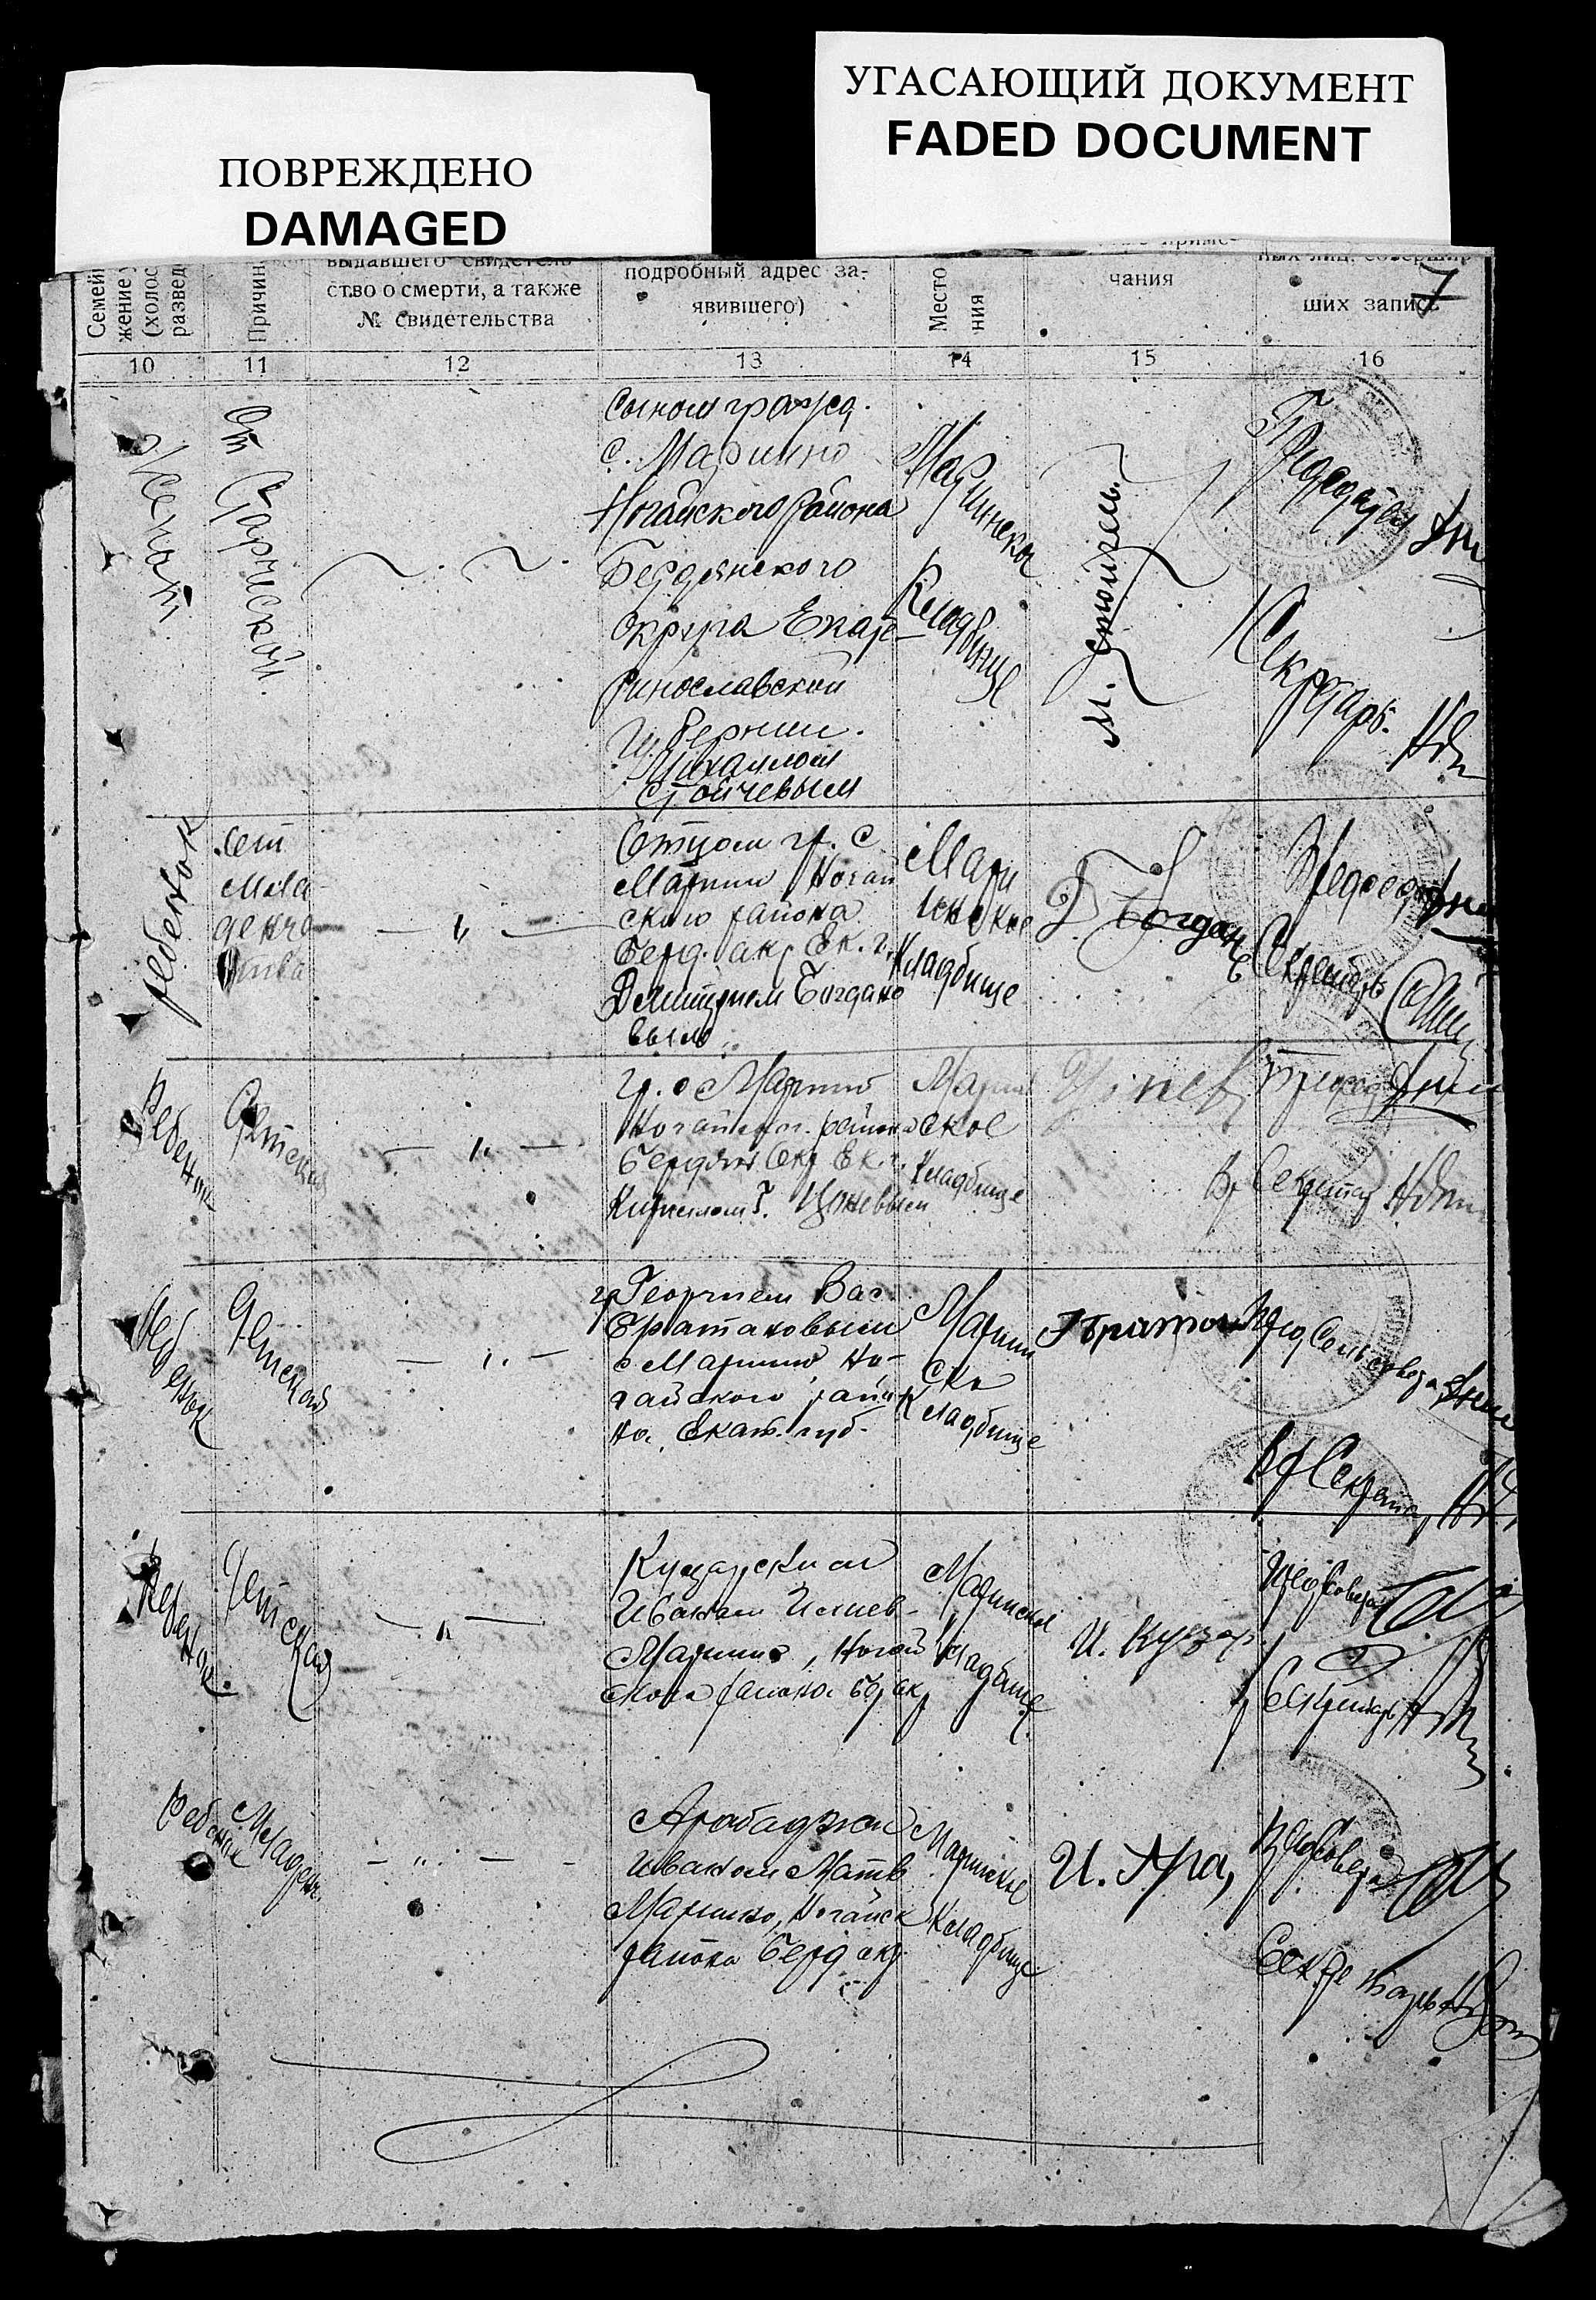 ПОВРЕЖДЕНО
DAMAGED
УГАСАЮЩИЙ ДОКУМЕНТ
FADED DOCUMENT
7
Семей
жение
(холос
развед
Причин
выдавшего свидетель
ство о смерти, а также
№ свидетельства
подробный адрес за-
явившего)
Место
ния
чания
ших запись
10
11
12
13
14
15
16
Женат
От Старческой
Сыном гражд.
с. Марино
Ногайского района
Бердянского
округа Екате-
ринославской
губернии.
Михаилом
Стойчевым
Маринское
Кладбище
Председатель
Секретарь
ребенок
Мла
денче
ства
Отцом гр. с
Марино Ногай
ского района
Берд. окр Ек. г.
Дмитрием Богдано
вым
Мари
нское
Кладбище
Д Богдан
Председ
Секретарь
Ребенок
Детская
гр. с Марино
Ногайског. района
Бердян Окр Ек. г.
Кириллом Г. Цоневым
Марин
ское
Кладбище
Цонев
Председ
Вр Секретар
Ребенок
Детской
гр Георгием Вас.
Братановым
с Марино Но-
гайского райо
на Екат. губ.
Марин
ско
Кладбище
Братан
Пред Сельсовета
Вр Секретар
Ребенок
Детская
Иваном Илиев
Марино, Ногай
ского района Бер окр
Маринское
Кладбище
Предсовета
Секретарь
Ребенок
Младенч.
Арабаджи
Иваном Матв
Марино, Ногайск
района Берд окр
Маринское
Кладбище
И. Ара,
Предсовета
Секретарь